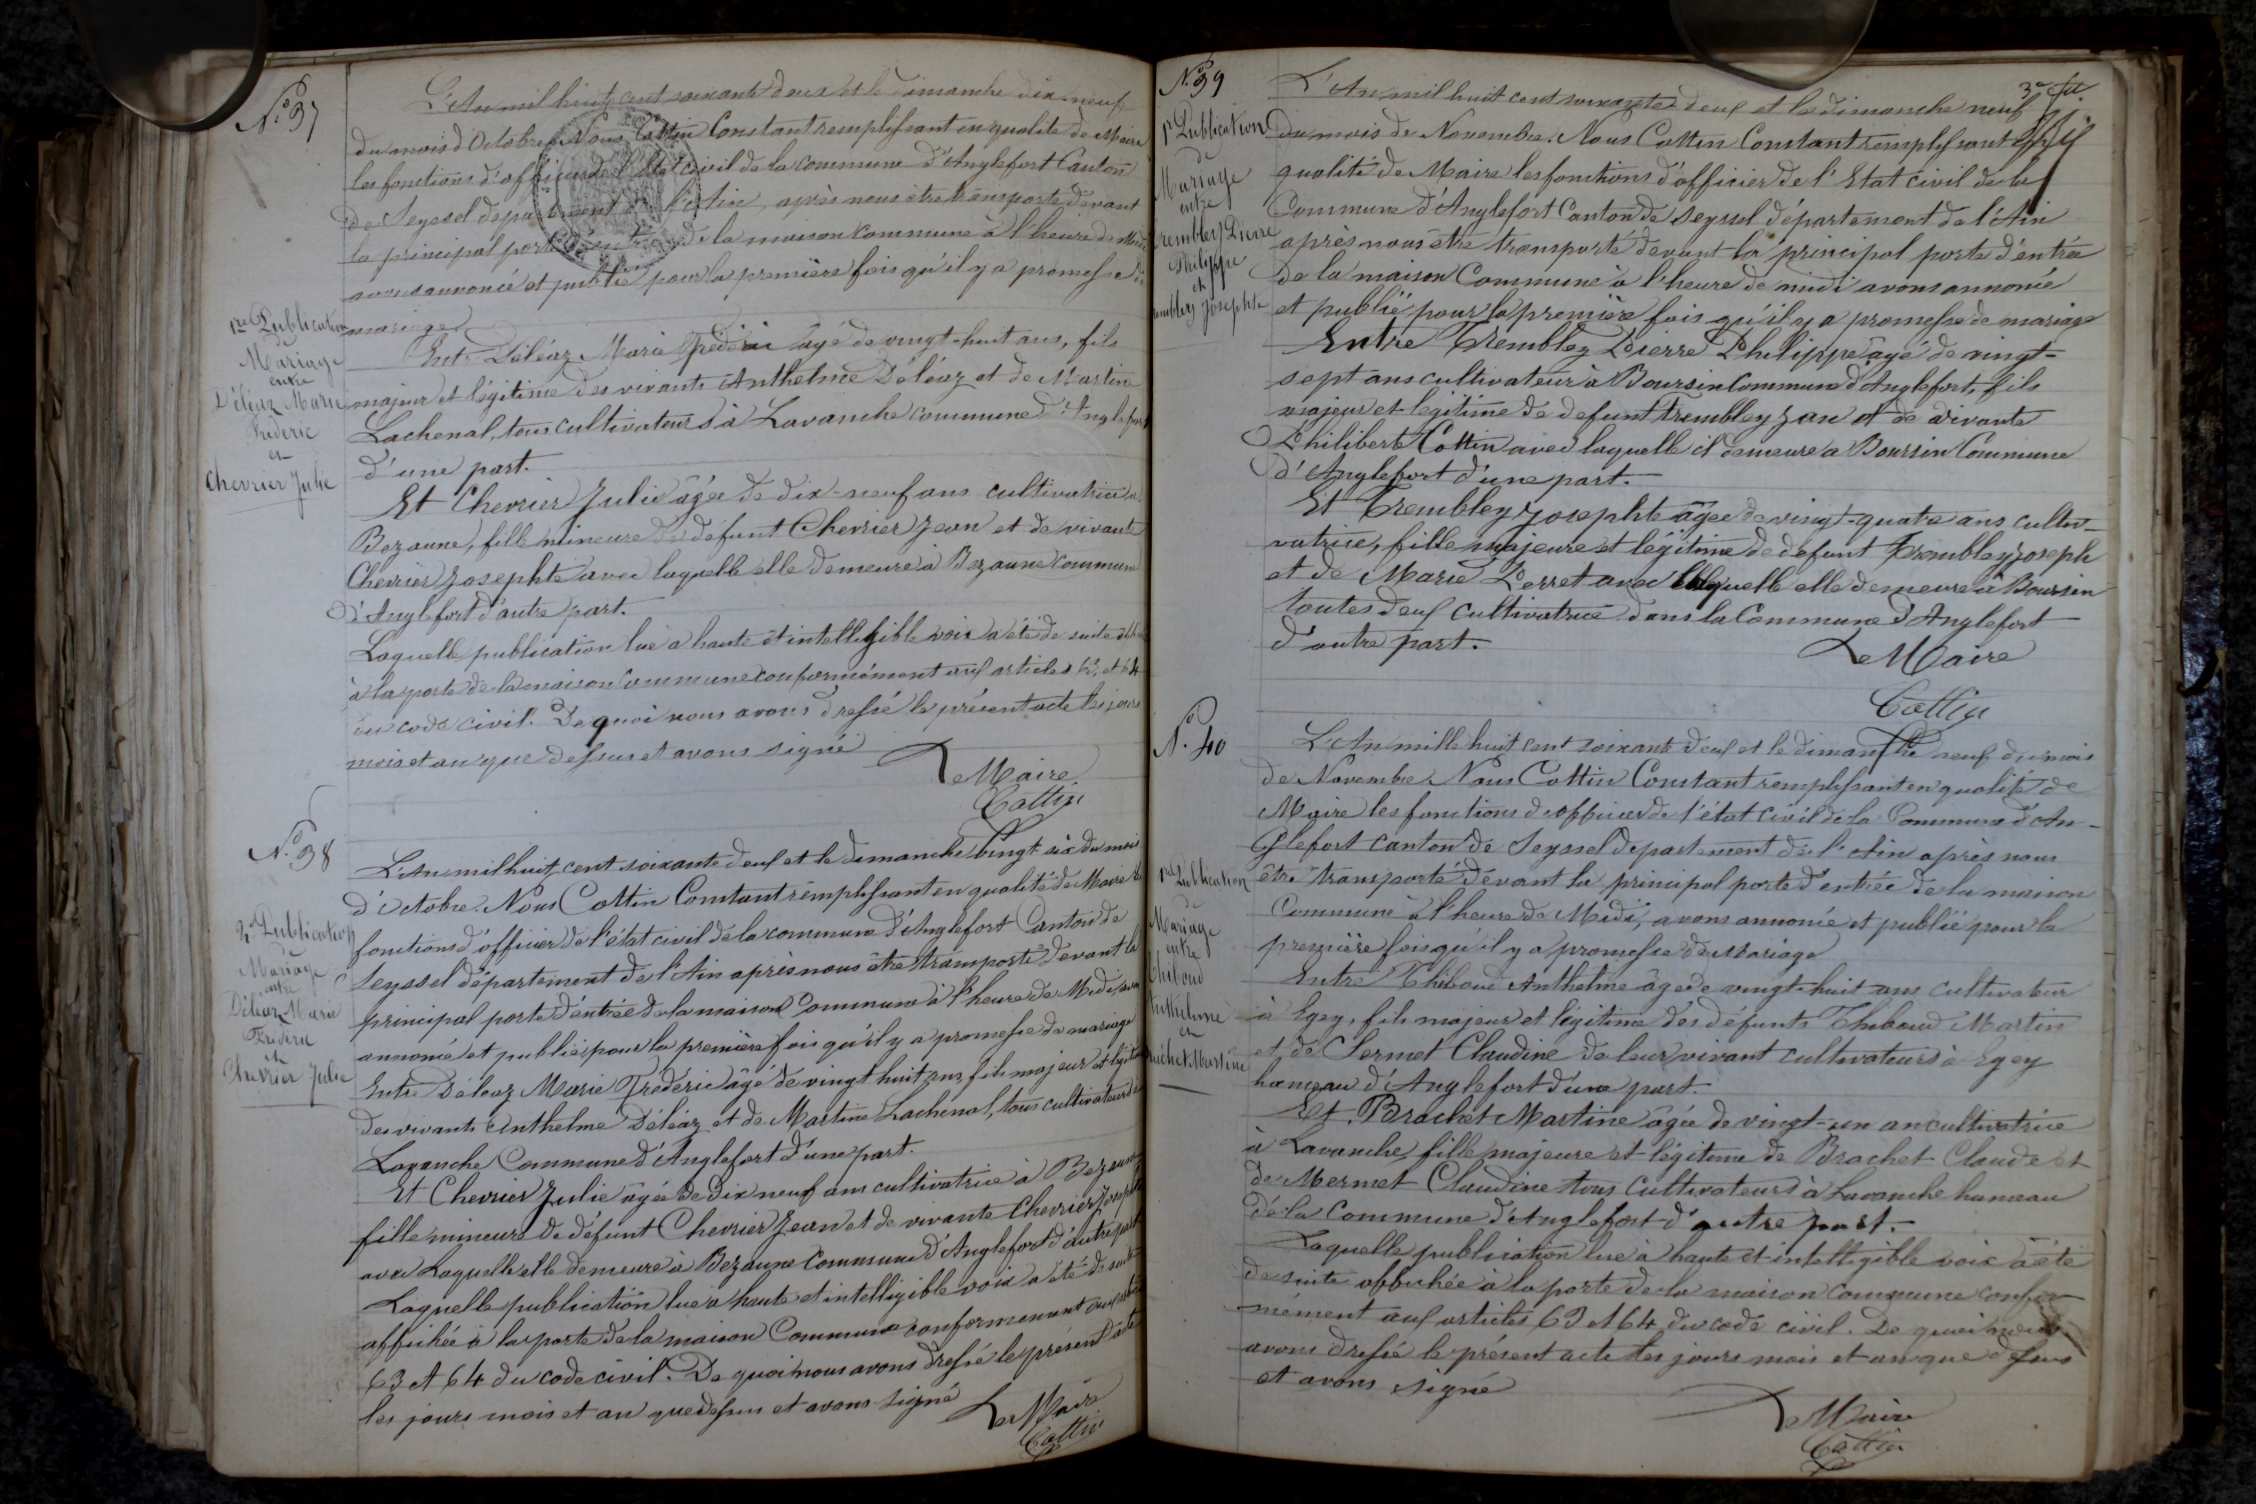 N.° 37
L'An mil huit cent soixante deux et le dimanche dix-neuf
du mois d'Octobre Nous Cottin Constant remplissant en qualité de Maire
les fonctions d'officier de l'état civil de la commune d'Anglefort Canton
de Seyssel département de l'Ain, après nous être transporté devant
la principal porte d'entrée de la maison commune à l'heure de Midi
avons annoncé et publié pour la première fois qu'il y a promesse de
mariage
1re Publication
Mariage
entre
Déléaz Marie
Frédéric
et
Chevrier Julie
Entre Déléaz Marie Frédéric âgé de vingt-huit ans, fils
majeur et légitime des vivants Anthelme Déléaz et de Martine
Lachenal, tous cultivateurs à Lavanche commune d'Anglefort
d'une part.
Et Chevrier Julie âgée de dix-neuf ans cultivatrice à
Bezonne, fille mineure de défunt Chevrier Jean et de vivante
Chevrier Josephte avec laquelle elle demeure à Bezonne commune
d'Anglefort d'autre part.
Laquelle publication lue à haute et intelligible voix a été de suite
à la porte de la maison Commune conformément aux articles 63 et 64
du code civil. De quoi nous avons dressé le présent acte les jours
mois et an que dessus et avons signé
Le Maire
Cottin
N.° 38
L'An mil huit cent soixante deux et le dimanche Vingt-six du mois
d'Octobre. Nous Cottin Constant remplissant en qualité de Maire les
fonctions d'officier de l'état civil de la commune d'Anglefort Canton de
Seyssel département de l'Ain après nous être transporté devant la
principal porte d'entrée de la maison Commune à l'heure de Midi avons
annoncé et publié pour la première fois qu'il y a promesse de mariage
2e Publication
de
Mariage
entre
Déléaz Marie
Fréderic
et
Chevrier Julie
Entre Déléaz Marie Frédéric âgé de vingt huit ans, fils majeur et légitime
des vivants Anthelme Déléaz et de Martine Lachenal, tous cultivateurs à
Lavanche Commune d'Anglefort d'une part.
Et Chevrier Julie âgée de dix neuf ans cultivatrice à Bezonne
fille mineure de défunt Chevrier Jean et de vivante Chevrier Josephte
avec Laquelle elle demeure à Bezonne Commune d'Anglefort d'autre part
Laquelle publication lue à haute et intelligible voix a été de suite
affichée à la porte de la maison Commune conformément aux articles
63 et 64 du code civil. De quoi nous avons dressé le présent acte
les jours mois et an que dessus et avons signé
Le Maire
Cottin
N.° 39
L'An mil huit cent soixante deux et le dimanche neuf
du mois de Novembre. Nous Cottin Constant remplissant en
qualité de Maire les fonctions d'officier de l'Etat civil de la
Commune d'Anglefort Canton de Seyssel département de l'Ain
après nous être transporté devant la principal porte d'entrée
de la maison Commune à l'heure de midi avons annoncé
et publié pour la première fois qu'il y a promesse de mariage
1re Publication
de
Mariage
entre
Trembley Pierre
Philippe
et
Trembley Josephte
Entre Trembley Pierre Philippe âgé de vingt-
sept ans cultivateur à Boursin Commune d'Anglefort, fils
majeur et légitime de defunt trembley Jean et de vivante
Philiberte Cottin avec laquelle il demeure a Boursin Commune
d'Anglefort d'une part.
Et Trembley Josephte âgée de vingt-quatre ans cultiv-
vatrice, fille majeure et légitime de defunt Trembley Joseph
et de Marie Perret avec laquelle elle demeure à Boursin
toutes deux cultivatrice dans la Commune d'Anglefort
d'autre part.
Le Maire
Cottin
N.° 40
L'An mille huit cent soixante deux et le dimanche neuf du mois
de Novembre. Nous Cottin Constant remplissant en qualité de
Maire les fonctions d'officier de l'état civil de la Commune d'An-
glefort canton de Seyssel département de l'Ain après nous
être transporté devant la principal porte d'entrée de la maison
Commune à l'heure de Midi, avons annoncé et publié pour la
première fois qu'il y a promesse de Mariage
1re Publication
de
Mariage
entre
Thiboud
Anthelme
et
Brachet Martine
Entre Thiboud Anthelme âgé de vingt-huit ans cultivateur
à Egey, fils majeur et légitime des défunts Thiboud Martin
et de Sermet Claudine de leur vivant cultivateurs à Egey
hameau d'Anglefort d'une part.
Et Brachet Martine âgée de vingt-un an cultivatrice
à Lavanche, fille majeure et légitime de Brachet Claude et
de Mermet Claudine tous Cultivateurs à Lavanche hameau
de la Commune d'Anglefort d'autre part.
Laquelle publication lue à haute et intelligible voix a été
de suite affichée à la porte de la maison Commune confor-
mément aux articles 63 et 64 du code civil. De quoi nous
avons dressé le présent acte les jours mois et an que dessus
et avons signé
Le Maire
Cottin